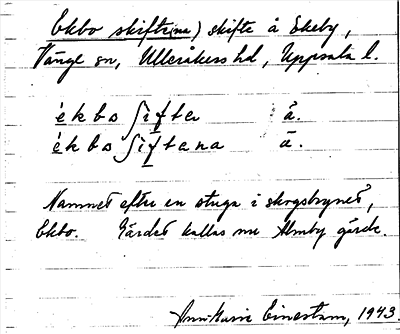 Ekbo skifte(na) skifte å Ekeby,
Vänge sn, Ulleråkers hd, Uppsala l.
èkbo ʃifter å.
èkbo ʃiftena ä.
Namnet efter en stuga i skogsbrynet,
Ekbo. Gärdet kallas nu Almby gärde.
Ann-Marie Einestam, 1943.